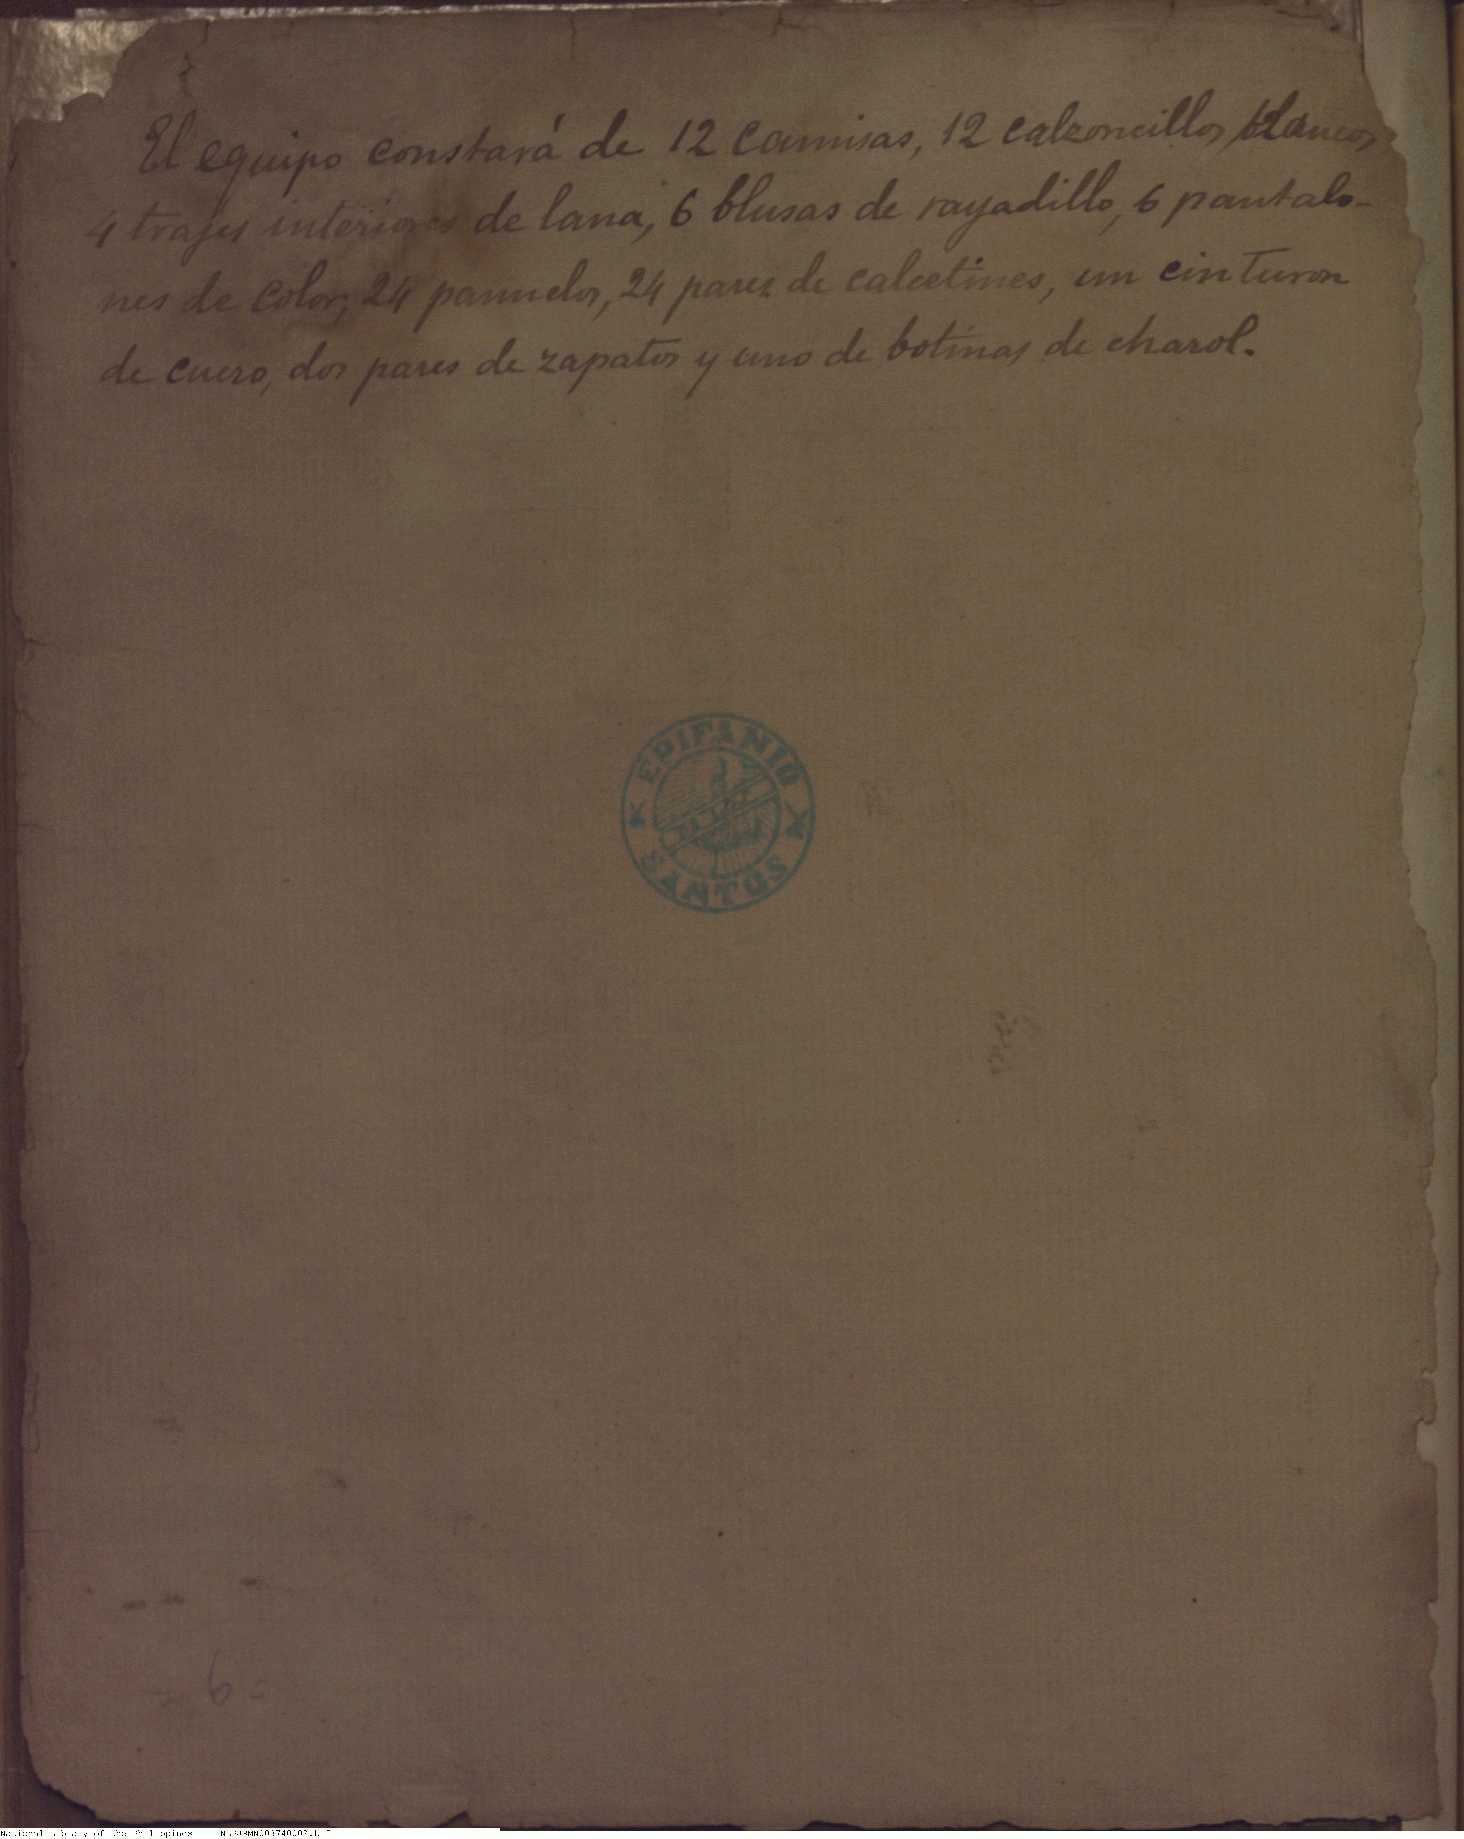 El equipo constará de 12 camisas, 12 calzoncillos blancos,
4 trajes interiores de lana, 6 blusas de rayadillo, 6 pantalo-
nes de color, 24 panuelos, 24 pares de calcetines, un cinturon
de cuero, dos pares de zapatos y uno de botinas de charol.
EPIFANIO
SANTOS
- 6 -
National Library of the Philippines